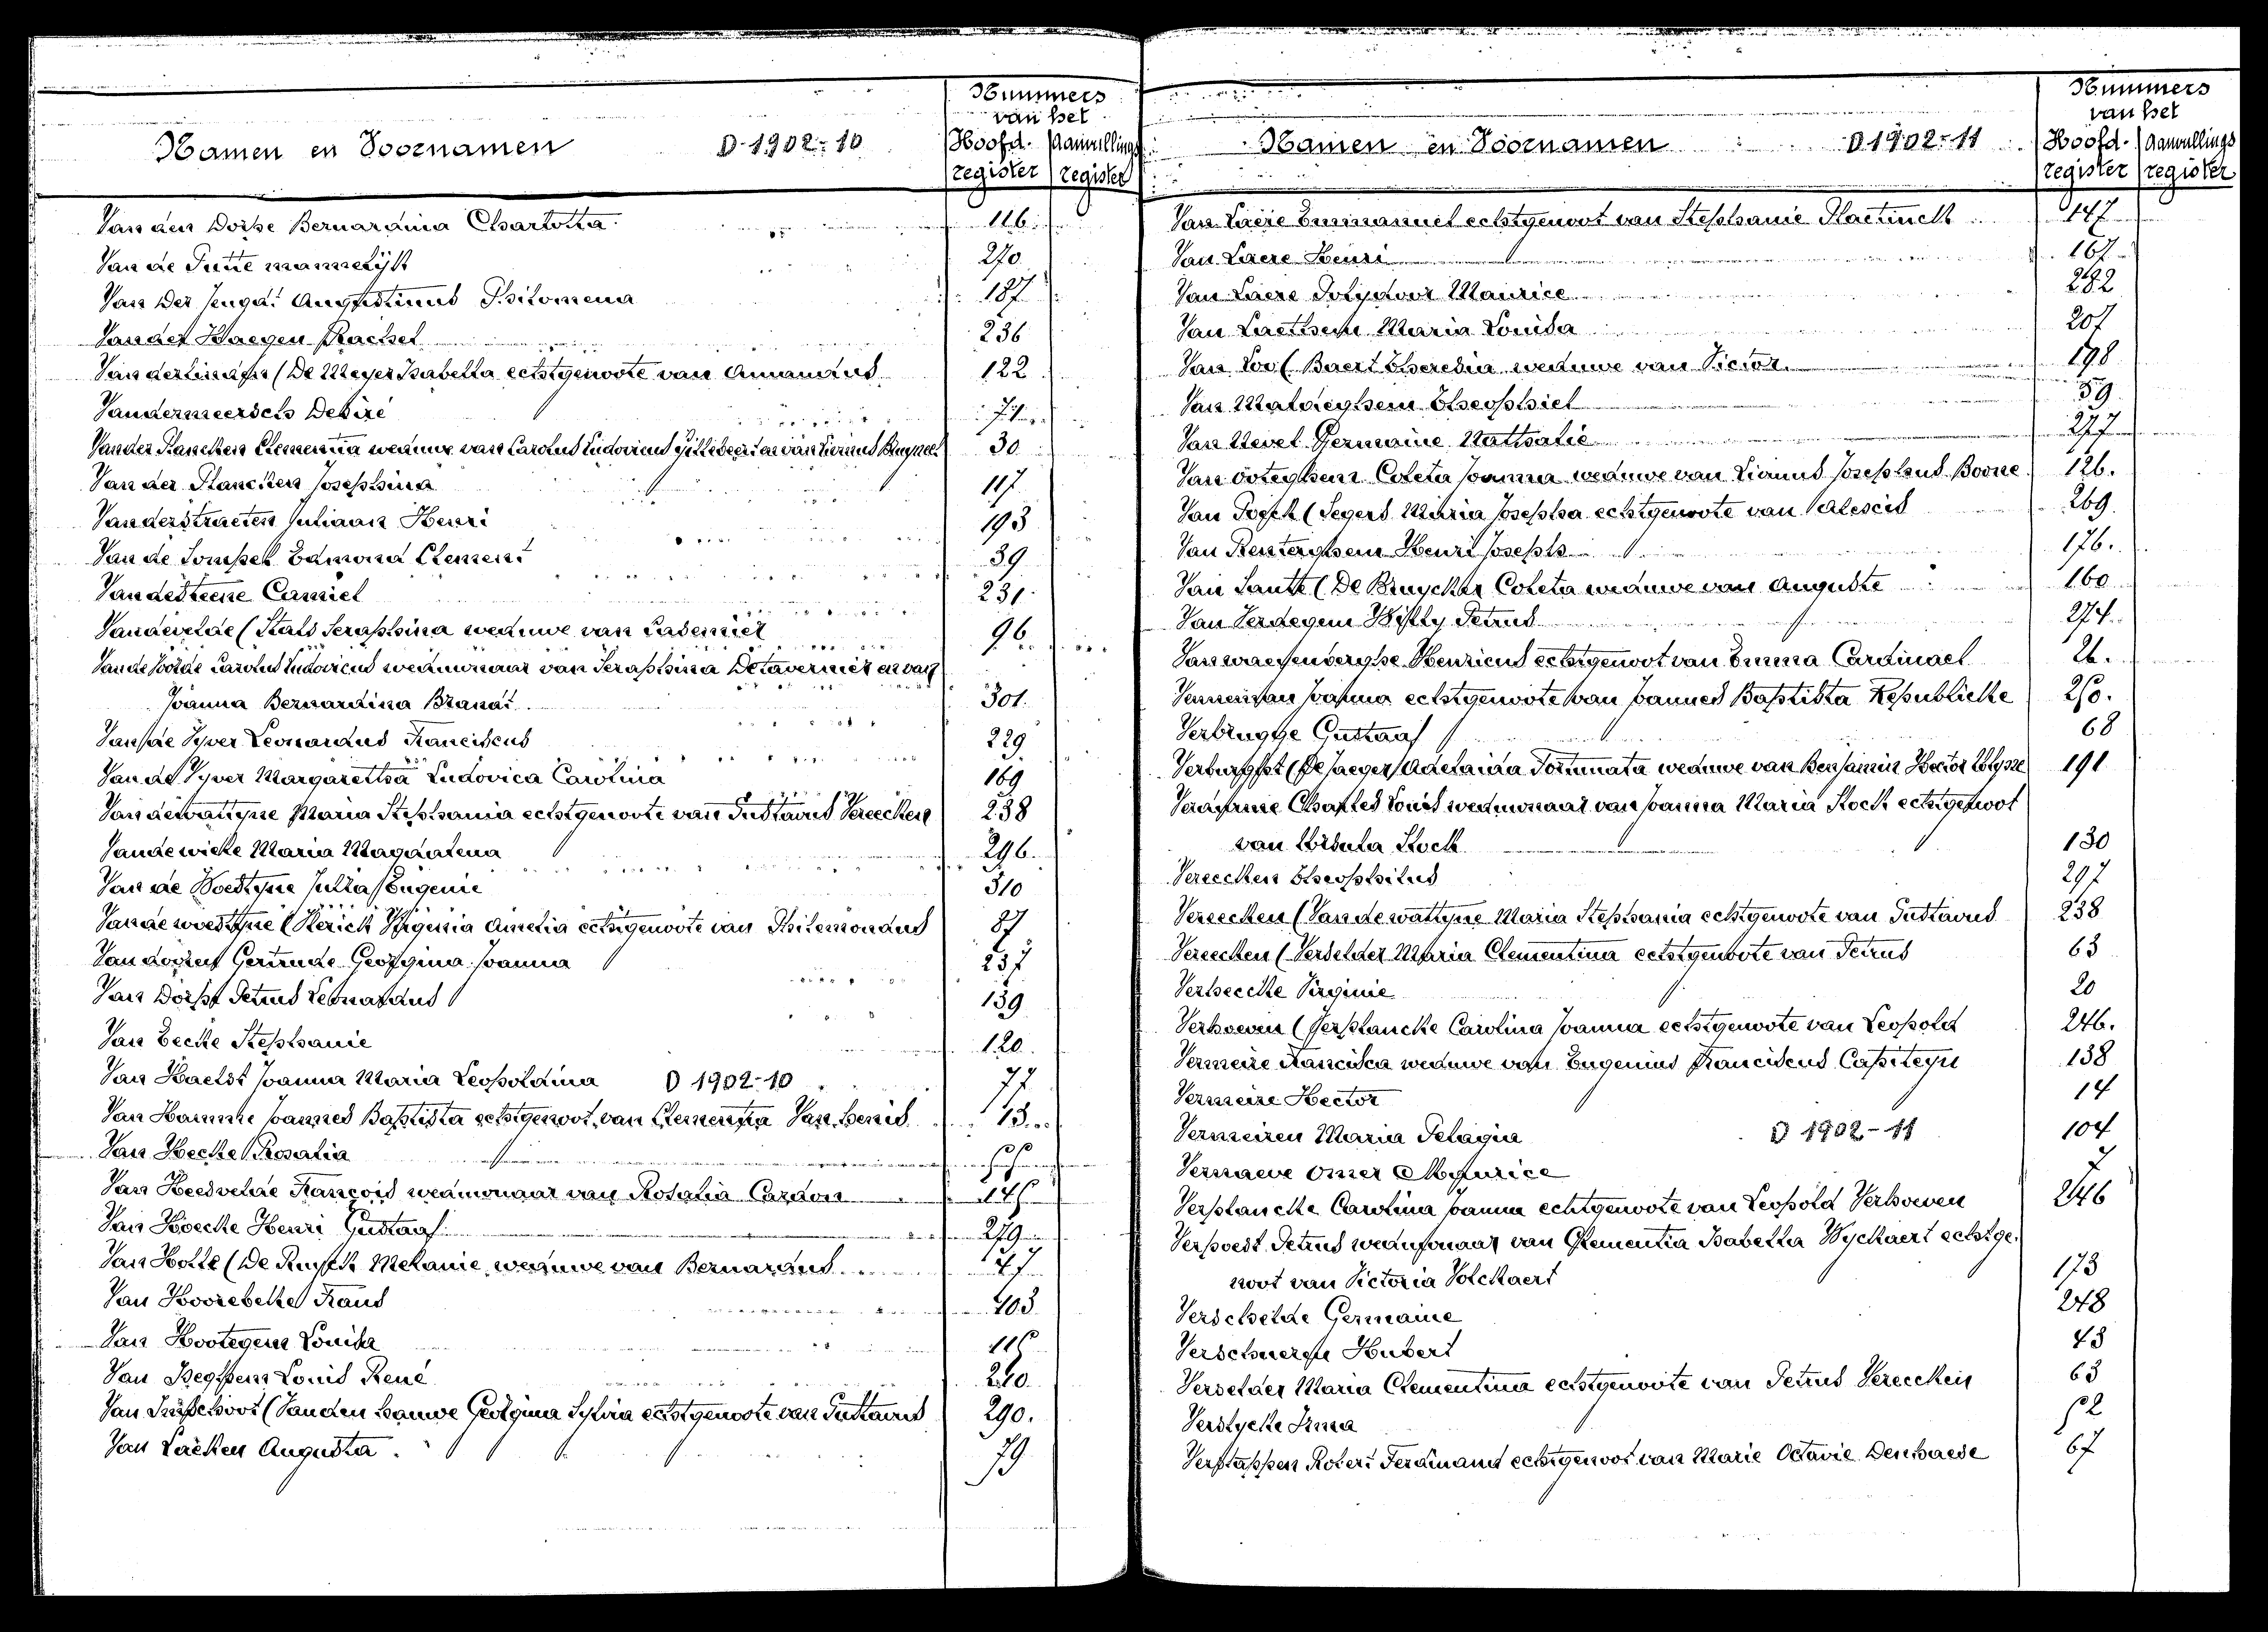 Nummers
van het
Namen en Voornamen D 1902-10 Hoofd- Aanvullings
register register
Van den Dorpe Bernardina Charlotta 116
Van de Putte mannelijk 270
Van Der Augustinus Philomena 187
Van der Haegen Rachel 236
Vanderlinden (De Meyer Isabella echtgenoote van Amandus 122
Vandermeersch Desiré 74
Van der Plancken Clementia weduwe van Carolus Ludovicus en van Livinus 30
Van der Plancken Josephina 117
Vanderstraeten Juliaan Henri 193
Van de Sompel Edmond Clement 39
Vandesteene Camiel 231
Vandevelde (Stals Seraphina weduwe van 96
Van de Voorde Carolus Ludovicus weduwnaar van Seraphina en van
Joanna Bernardina 301.
Van de Vyver Leonardus Franciscus 229
Van de Vyver Margaretha Ludovica Carolina 169
Vandewattyne Maria Stephania echtgenoote van Gustavus Vereecken 238
Vandewiele Maria Magdalena 296.
Van de Woestyne Julia Eugenie 310
Vandewoestyne (Sterick Iphigenia Amelia echtgenoote van Philemondus 87
Van dorpe Gertrude Georgina Joanna 237
Van Dorpe Petrus Leonardus 139
Van Eecke Stephanie 120
Van Haelst Joanna Maria Leopoldina D 1902-10 77
Van Hamme Joannes Baptista echtgenoot van Clementia Van 13
Van Hecke Rosalia 55
Van Heesvelde François weduwnaar van Rosalia Cardon 145
Van Hoecke Henri Gustaaf 279
Van Holle (De Ruyck Melanie weduwe van Bernardus 47
Van Hoorebeke Frans 103
Van Hootegem Louisa 115
Van Iseghem Louis René 210
Van (Van den hauwe Georgina Sylvia echtgenoote van Gustavus 290.
Van Laeken Augusta 79
Nummers
van het
Namen en Voornamen D 1902-11 Hoofd- Aanvullings
register register
Van Laere Emmanuel echtgenoot van Stephanie 147
Van Laere Henri 167
Van Laere Polydoor Maurice 282
Van Laethem Maria Louisa 207
Van Loo (Baert Theresia weduwe van Victor 198
Van Maldeghem Theophiel 59
Van Nevel Germaine Nathalie 277
Van Ooteghem Coleta Joanna weduwe van Livinus Josephus Boone 126.
Van (Segers Maria Josepha echtgenoote van 269
Van Renterghem Henri Joseph 176.
Van Sante (De Bruycker Coleta weduwe van Auguste 160
Van Verdegem Willy Petrus 274
Van waeyenberghe Henricus echtgenoot van Emma Cardinael 26.
Vermeulen Joanna echtgenoote van Joannes Baptista 250.
Verbrugghe Gustaaf 68
Verburght (De Jaeger) Adelaida Fortunata weduwe van Benjamin Hector Ulysse 191
Charles Louis weduwnaar van Joanna Maria Stock echtgenoot
van Ursula Stock 130
Vereecken Theophilus 297
Vereecken (Vandewattyne Maria Stephania echtgenoote van Gustavus 238
Vereecken (Verselder Maria Clementina echtgenoote van Petrus 63
Verheecke Virginie 20
Verhoeven (Verplancke Carolina Joanna echtgenoote van Leopold 246.
Vermeire Francisca weduwe van Eugenius Franciscus Capiteyn 138
Vermeire Hector 14
Vermeiren Maria Pelagia D 1902-11 104
Vernaeve Omer Maurice 7
Verplancke Carolina Joanna echtgenoote van Leopold Verhoeven 246
Verpoest Petrus weduwnaar van Clementia Isabella Wyckaert echtge-
noot van Victoria Volckaert 173
Verschelde Germaine 248
Hubert 43
Verselder Maria Clementina echtgenoote van Petrus Vereecken 63
Verslycke Irma 52
Verstappen Robert Ferdinand echtgenoot van Marie Octavie Denhaese 67